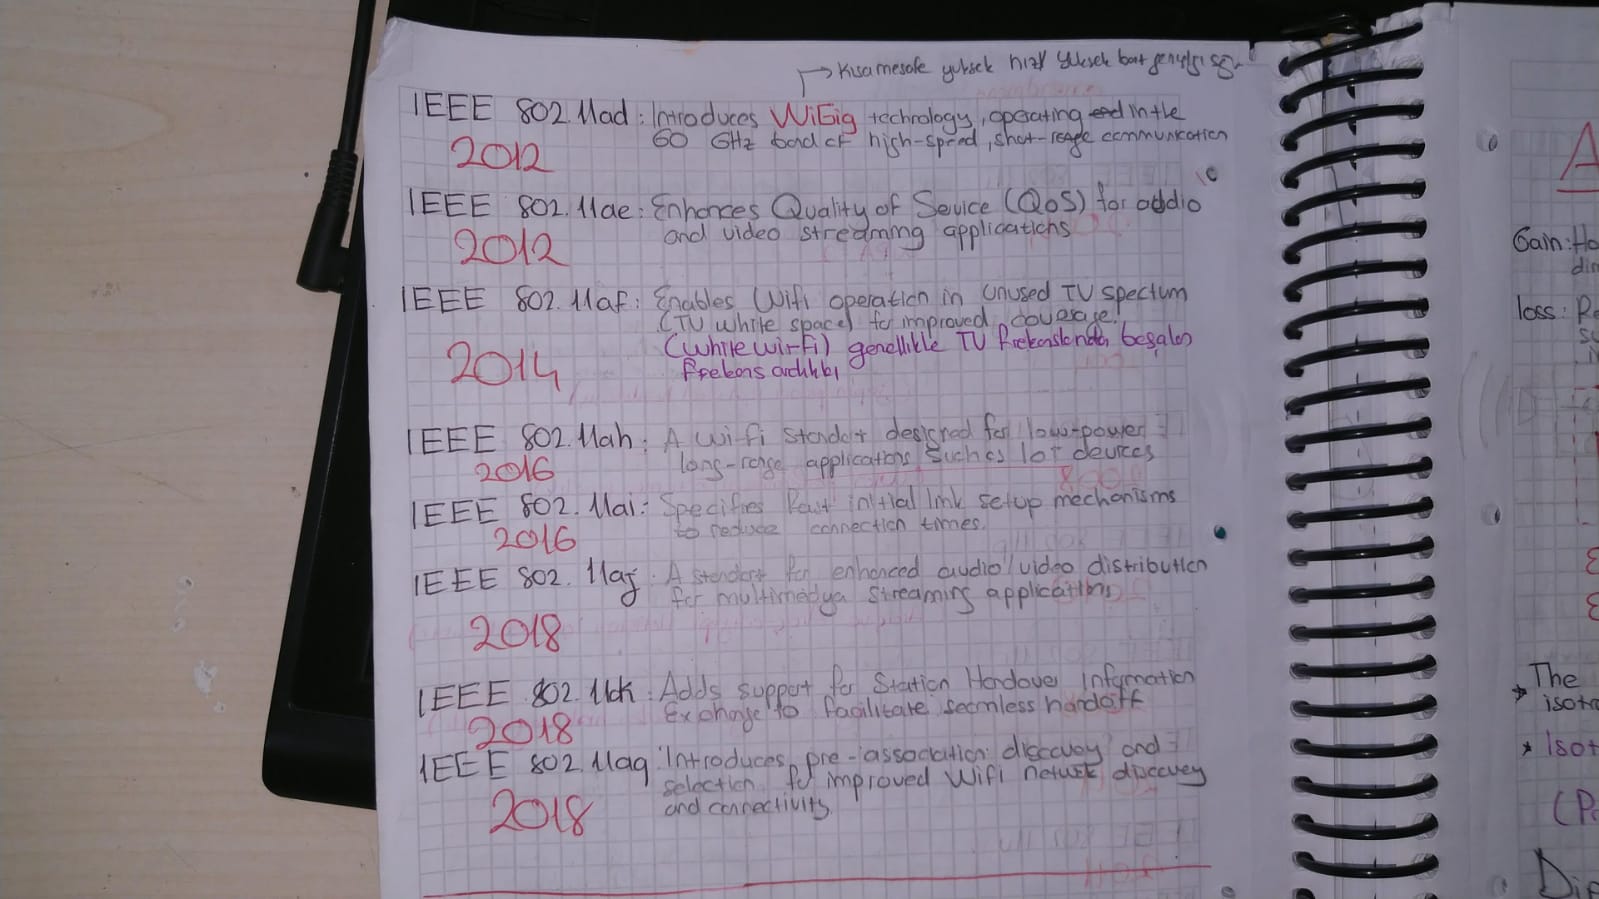 → Kısa mesafe yüksek hızlı yüksek bant genişliği
IEEE 802.11ad : Introduces WiGig technology, operating in the
2012 60 GHz band of high-speed, short-range communication
IEEE 802.11ae : Enhances Quality of Service (QoS) for addio
2012 and video streaming applications
IEEE 802.11af : Enables Wifi operation in unused TV spectum
(TV white space) for improved coverage.
2014 (White wi-fi) genellikle TV frekanslarında
frekans aralıkları
IEEE 802.11ah : A Wi-Fi standart designed for low-power
2016 long-range applications such as IoT devices
IEEE 802.11ai : Specifies Fast initial link setup mechanisms
2016 to reduce connection times.
IEEE 802.11aj : A standart for enhanced audio/video distribution
for multimedya streaming applications
2018
IEEE 802.11ak : Adds support for Station Handover Information
2018 Exchange to facilitate seamless handoff
IEEE 802.11aq : Introduces pre-association discovery and
selection for improved Wifi network discovery
2018 and connectivity.
A
Gain:
loss:
The
* Isot